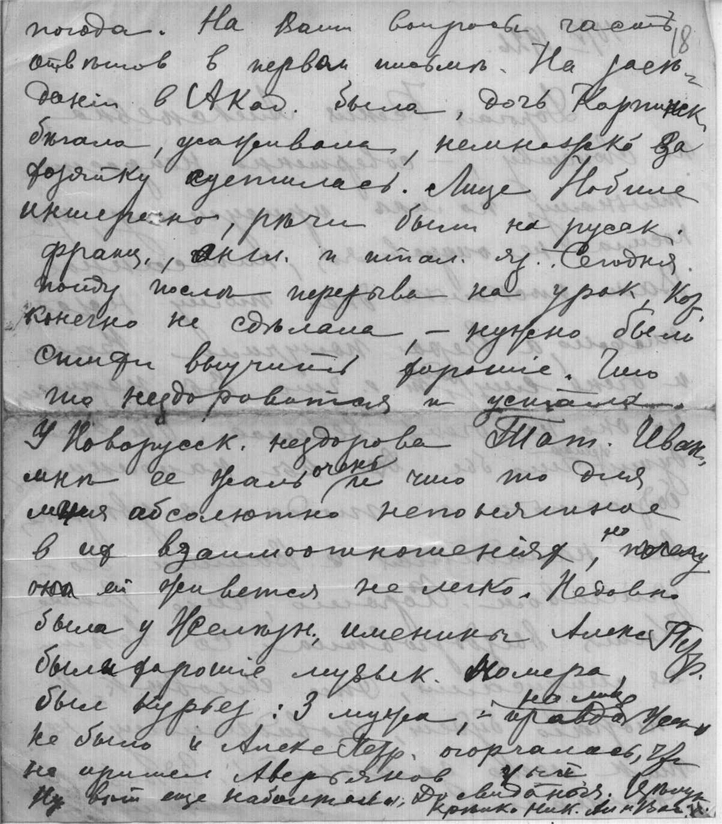 погода. На Ваши вопросы часть 18
отвѣтов в первом письмѣ. На засѣ-
данiи в Акад. была, дочь Карпинск.
бѣгала, усаживала, немножко за
хозяйку суетилась. Лицо Нобиле
интересно, рѣчи были на русск.
франц., англ. и итал. яз. Сегодня
пойду послѣ перерыва на урок,
конечно не сдѣлала, – нужно было
стихи выучить хорошiе. Что
то нездоровится и устала.
У Новорусск. нездорова Тат. Иван.
мнѣ ее жаль очень и что то для
меня абсолютно непонятное
в их взаимоотношенiях, но почему
ей живется не легко. Недавно
была у Желкун. именины Алекс. Петр.
были хорошiе музык. номера,
был курьез: 3 мужа, – правда налице
не было и Алекс. Петр. огорчалась, что
не пришел Аверьянов
Ну вот еще наболтала. До свиданья. Цѣлую
крѣпко Ник.